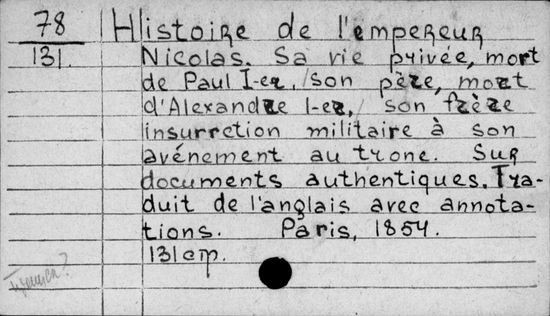 78
131.
Histoire de l'empereur
Nicolas. Sa vie privée, mort
de Paul I-er, son père, mort
d'Alexandre I-er, son frère
insurrction militaire à son
avénement au trone. Sur
documents authentiques. Tra-
duit de l'anglais avec annota-
tions. Paris, 1854.
131 cmp.